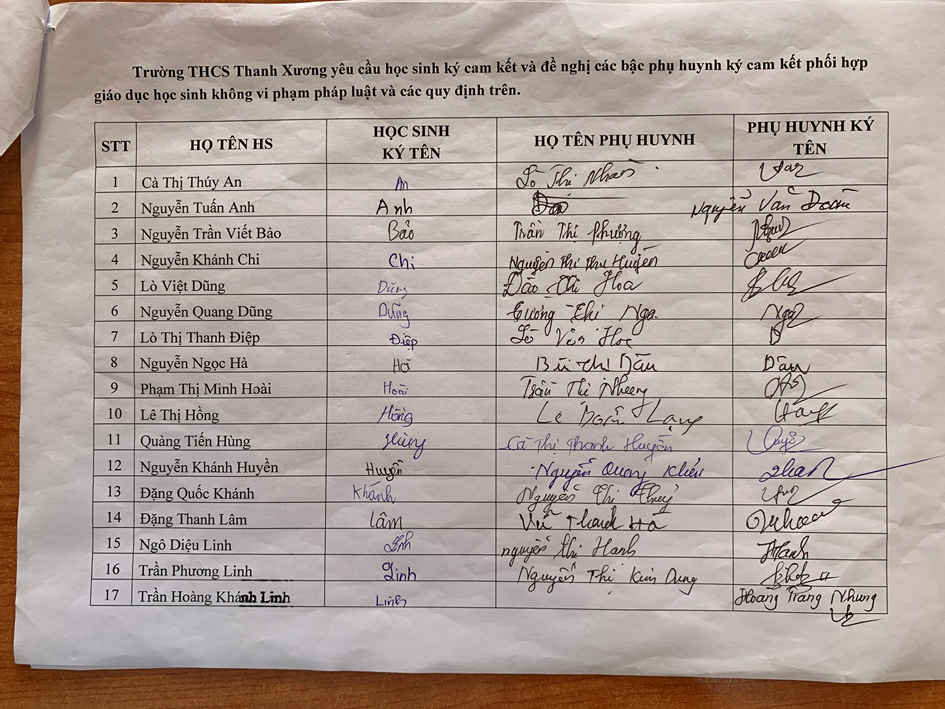 Trường THCS Thanh Xương yêu cầu học sinh ký cam kết và đề nghị các bậc phụ huynh ký cam kết phối hợp
giáo dục học sinh không vi phạm pháp luật và các quy định trên.
STT HỌ TÊN HS HỌC SINH KÝ TÊN HỌ TÊN PHỤ HUYNH PHỤ HUYNH KÝ TÊN
1 Cà Thị Thúy An An Lò Thị
2 Nguyễn Tuấn Anh Anh Nguyễn Văn
3 Nguyễn Trần Viết Bảo Bảo Trần Thị Phượng
4 Nguyễn Khánh Chi Chi Nguyễn Thị Thu Huyền
5 Lò Việt Dũng Dũng Đào Thị Hoa
6 Nguyễn Quang Dũng Dũng Thị Nga Nga
7 Lò Thị Thanh Điệp Điệp Lò Văn
8 Nguyễn Ngọc Hà Hà Bùi Thị Dần Dần
9 Phạm Thị Minh Hoài Hoài Trần Thị
10 Lê Thị Hồng Hồng Lê
11 Quàng Tiến Hùng Hùng Cà Thị Thanh Huyền
12 Nguyễn Khánh Huyền Huyền Nguyễn Quang
13 Đặng Quốc Khánh Khánh Nguyễn Thị Thuỷ
14 Đặng Thanh Lâm Lâm Vũ Thanh Hà
15 Ngô Diệu Linh Linh nguyễn thị Hanh Hanh
16 Trần Phương Linh Linh Nguyễn Thị Kim Dung
17 Trần Hoàng Khánh Linh Linh Hoàng Trang Nhung